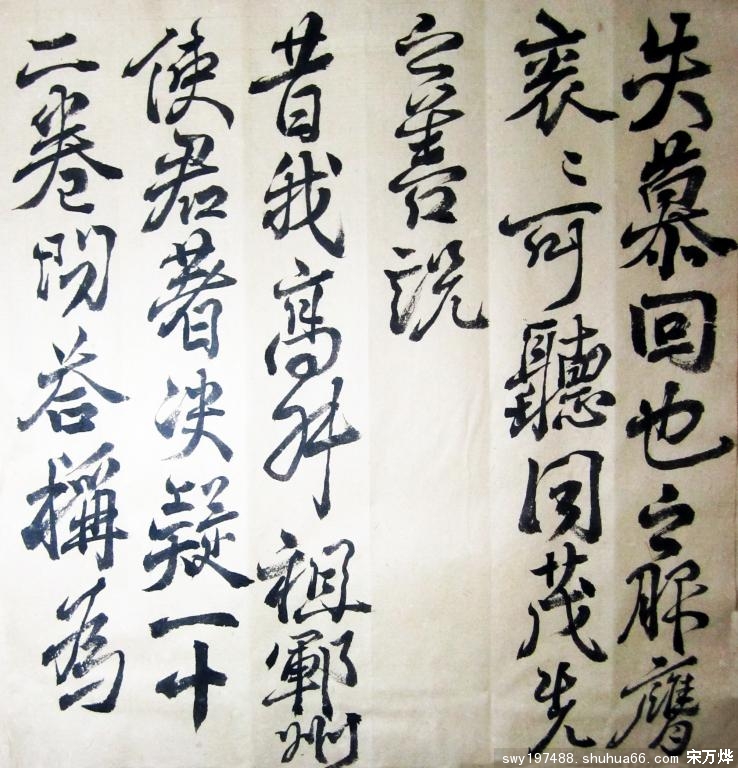 失慕回也之服膺
衮衮可聽同茂先
之善説
昔我高叔祖鄆州
使君著决疑一十
二卷問答稱為
swy197488.shuhua66.com 宋万烨